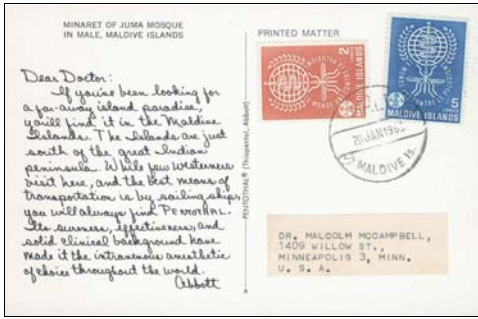 MINARET OF JUMA MOSQUE
IN MALE, MALDIVE ISLANDS
Dear Doctor:
If you've been looking for
a far-away island paradise,
you'll find it in the Maldive
Islands. The Islands are just
south of the great Indian
peninsula. While few Westerners
visit here, and the best means of
transportation is by sailing ships,
you will always find PENTOTHAL.
Its sureness, effectiveness, and
solid clinical background have
made it the intravenous anesthetic
of choice throughout the world.
Abbott
PENTOTHAL® (Thiopental, Abbott)
PRINTED MATTER
2
MALDIVE ISLANDS
MALDIVE ISLANDS
5
20 JAN 196
MALDIVE IS.
DR. MALCOLM MCCAMPBELL,
1409 WILLOW ST.,
MINNEAPOLIS 3, MINN.
U. S. A.